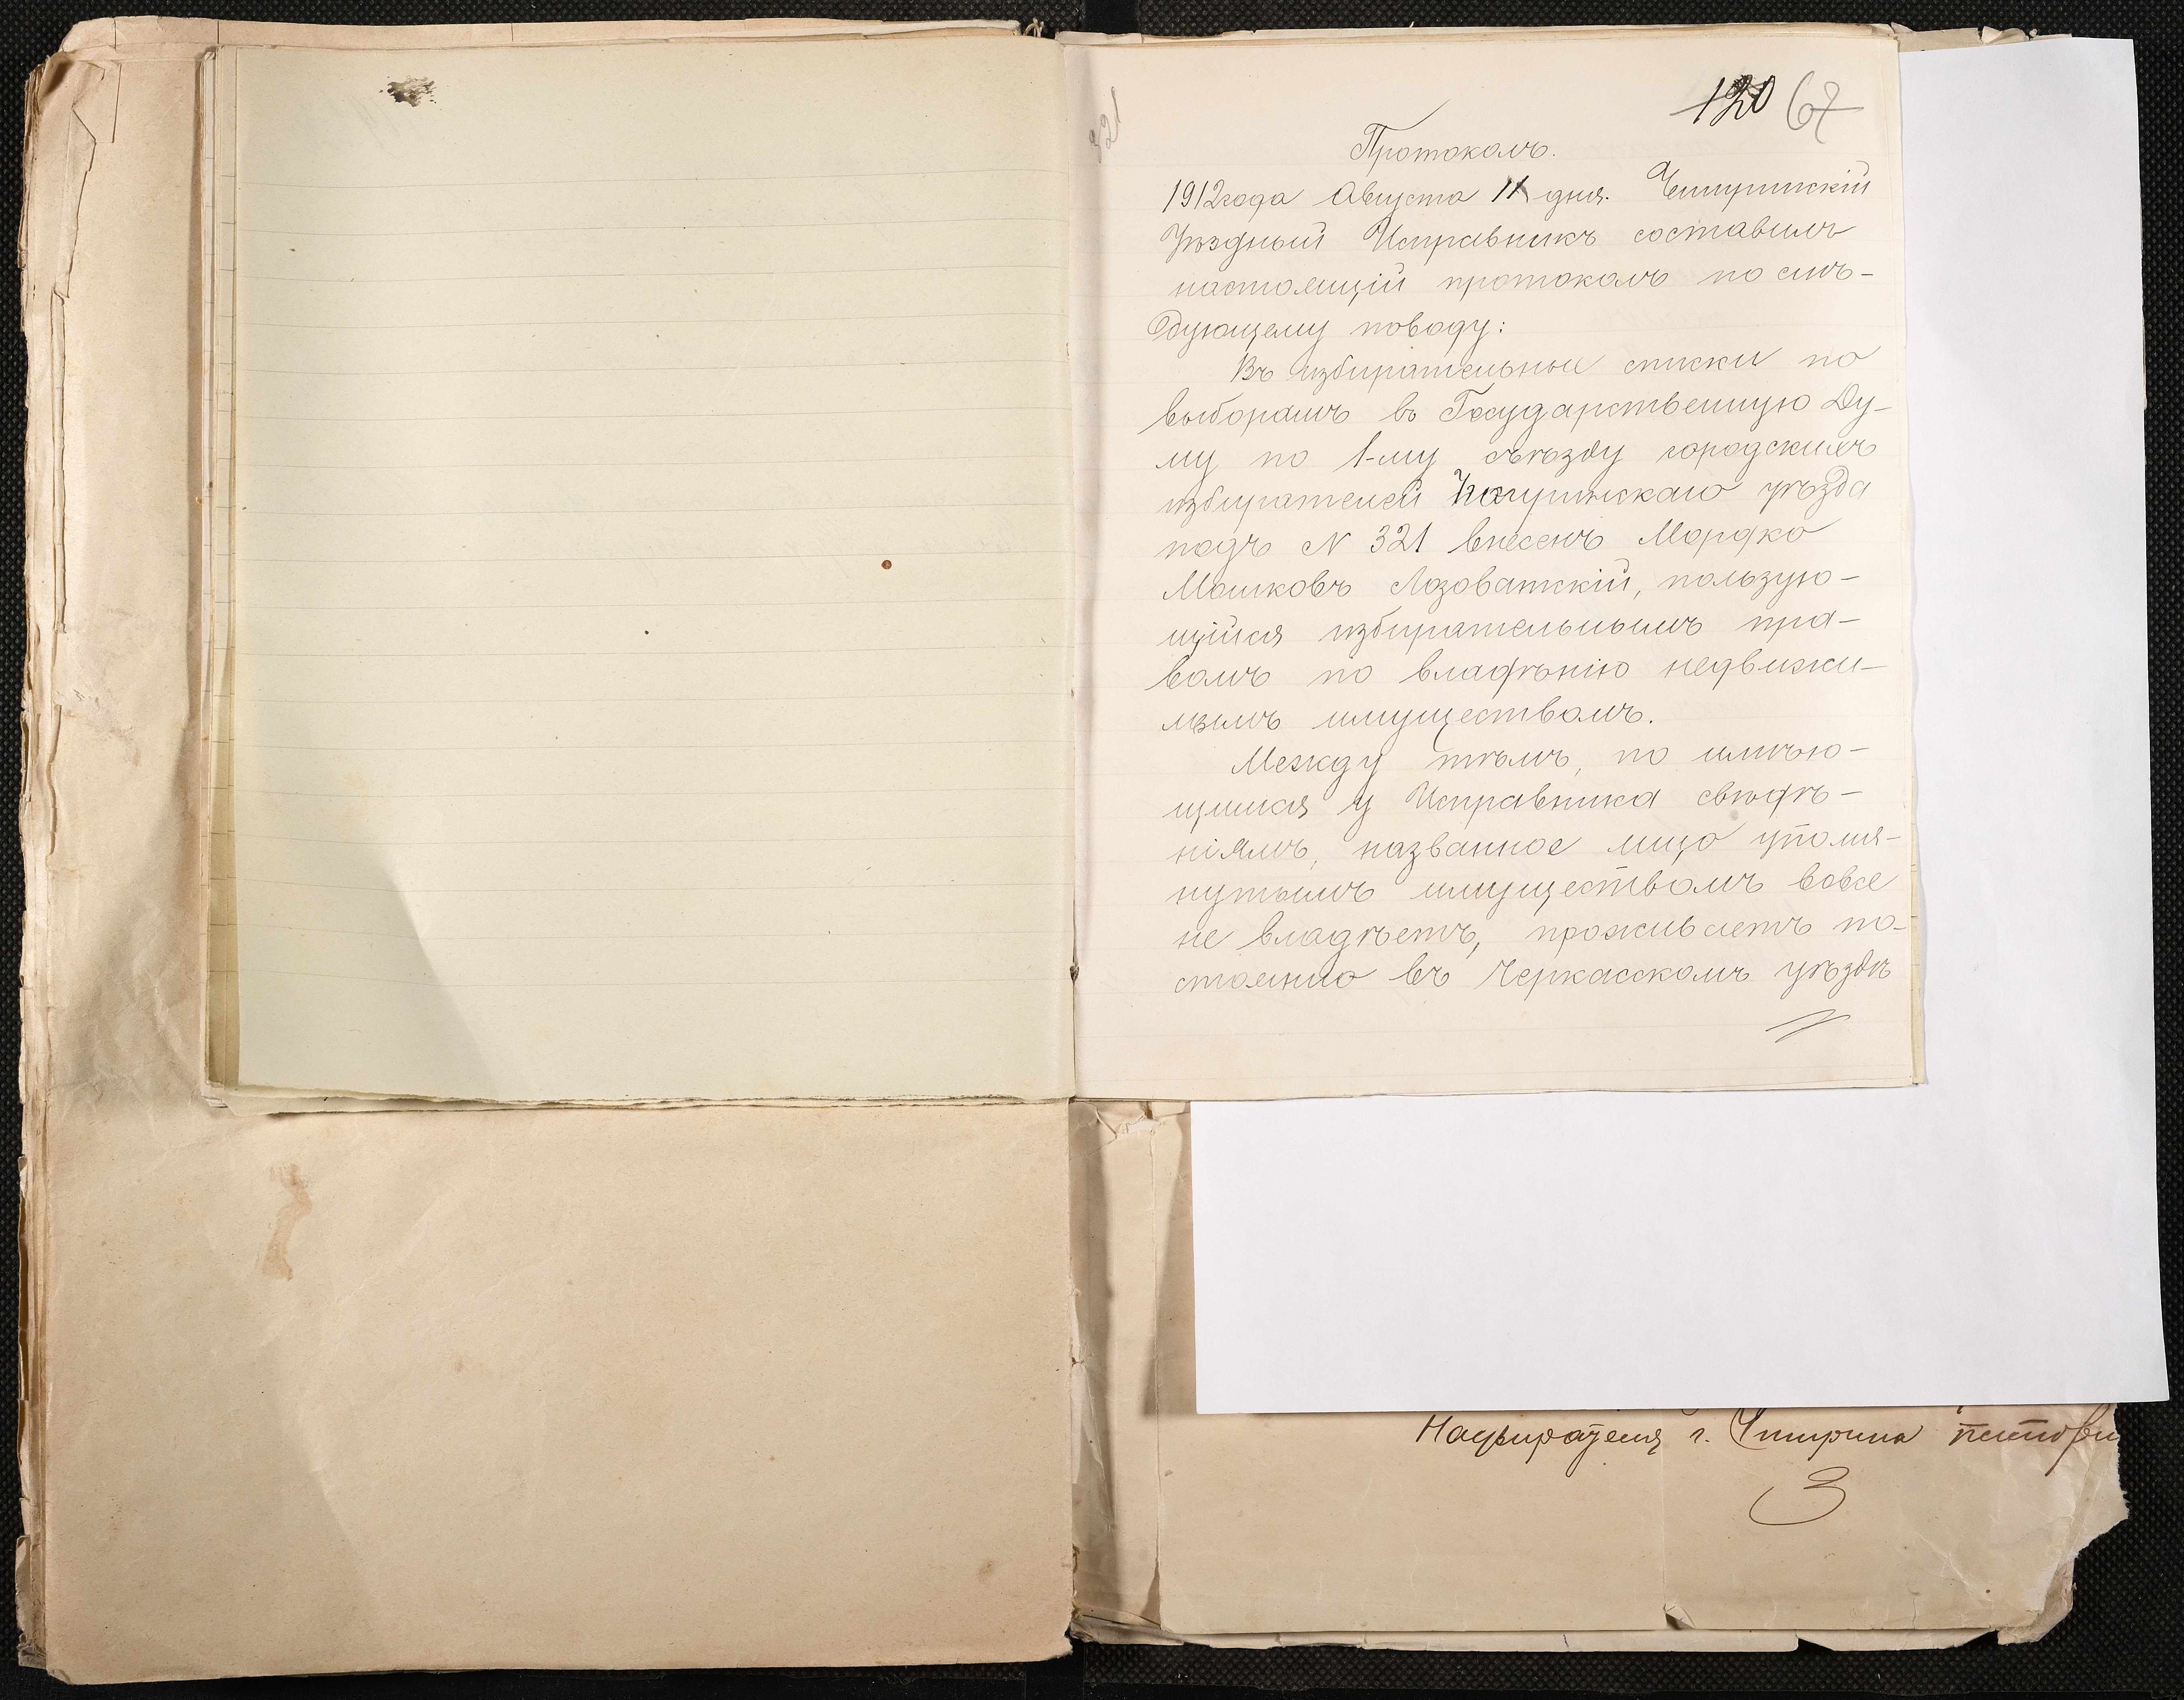 321
120 67
Протоколъ.
1912 года Августа 11 дня. Чигиринскій
Уѣздный Исправникъ составилъ
настоящій протоколъ по слѣ-
дующему поводу:
Въ избирательные списки по
выборамъ въ Государственную Ду-
му по 1-му съѣзду городскихъ
избирателей Чигиринскаго уѣзда
подъ № 321 внесенъ Мордко
Мошковъ Лозоватскій, пользую-
щійся избирательнымъ пра-
вомъ по владѣнію недвижи-
мымъ имуществомъ.
Между тѣмъ, по имѣю-
щимся у Исправника свѣдѣ-
ніямъ, названное лицо упомя-
нутымъ имуществомъ вовсе
не владѣетъ, проживаетъ по-
стоянно въ Черкасскомъ уѣздѣ
Надзирателя г. Чигирина